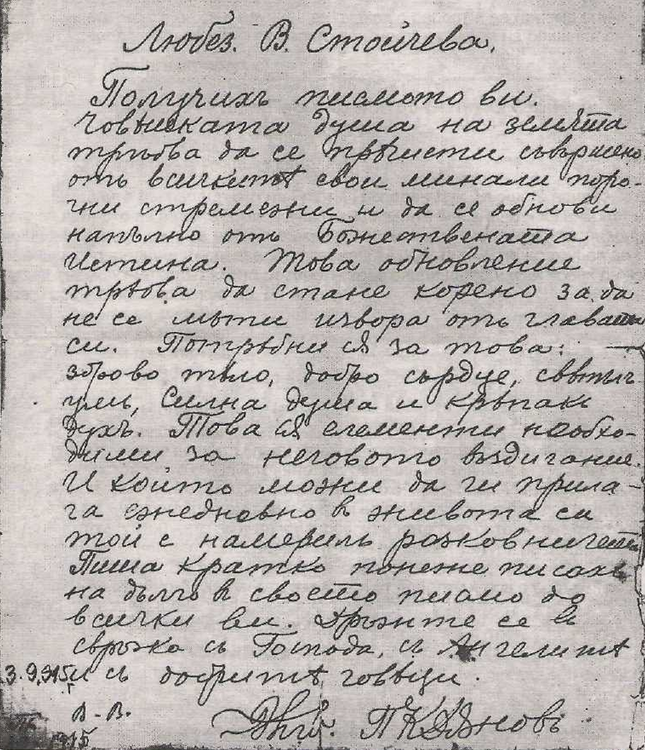 Любез. В. Стойчева.
Получихъ писмото ви.
Човѣшката душа на земята
трѣбва да се прѣчисти съвършено
отъ всичкитѣ свои минали поро-
чни стремежи и да се обнови
напълно отъ Божествената
Истина. Това обновление
трѣбва да стане корено за да
не се мѫти извора отъ главата
си. Потрѣбни сѫ за това: —
здрово тѣло, добро сърдце, свѣтълъ
умъ, силна душа и крѣпакъ
духъ. Това сѫ елементи необхо-
дими за неговото въздигание.
И който може да ги прила-
га ежедневно в живота си
той е намерилъ розковничето.
Пиша кратко понеже писахъ
на дълго в своето писмо до
всички ви. Дръжте се в
свръзка съ Господа, съ Ангелитѣ
3.9.915 и съ добритѣ човѣци.
В-В. П К Дѫновъ
915